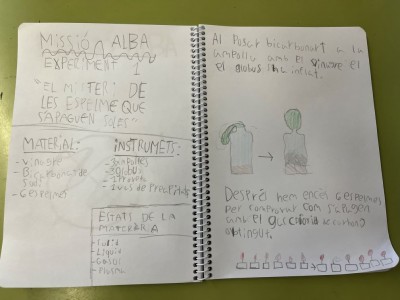 Missió ALBA
EXPERIMENT 1
"EL MISTERI DE
LES ESPELME QUE
S'APAGUEN SOLES"
MATERIAL:
-vinagre
-Bicarbonat de
Sodi
-6 espelmes
INSTRUMETS:
-3 ampolles
-3 globus
-1 Proveta
-1 vas de Precipitats
ESTATS DE LA
MATÈRIA
-Solid
-Líquid
-Gasós
-Plasma
Al Posar bicarbonat a la
ampolla amb el vinagre el
el globus
Després hem encés 6 espelmes
per comprovar com s'apagen
amb el gas
obtingut.